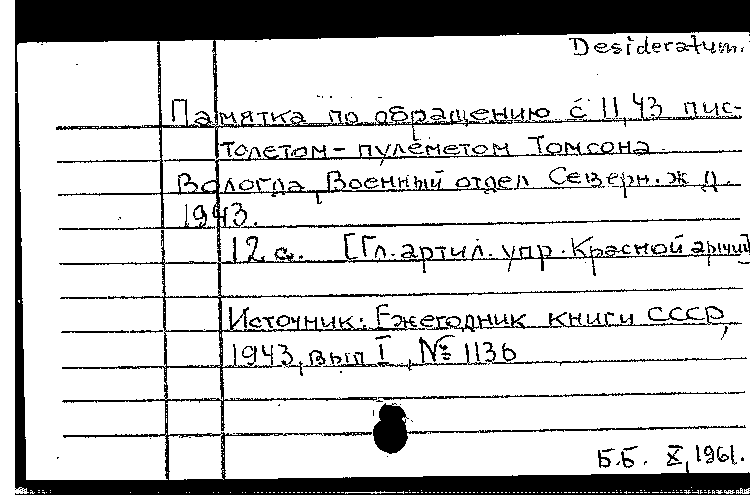 Desideratum.
Памятка по обращению с 11,43 пис-
толетом-пулеметом Томсона
Вологда, Военный отдел Северн. ж д.
1943.
12 с. [Гл. артил. упр. Красной армии]
Источник: Ежегодник книги СССР,
1943, вып I, № 1136
Б.Б. X, 1961.